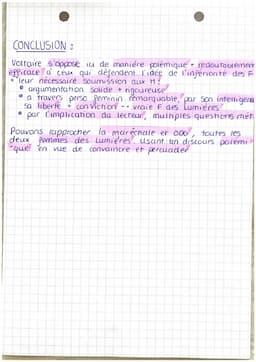 CONCLUSION :
Voltaire s'oppose ici de manière polémique + redoutablement
efficace à ceux qui défendent l'idée de l'infériorité des F
+ leur nécessaire soumission aux H :
• argumentation solide + rigoureuse
• a travers perso féminin remarquable, par son intelligence
sa liberté + conviction -- vraie F des Lumières
• par l'implication du lecteur, multiples questions
Pouvons rapprocher la maréchale et, toutes les
deux femmes des Lumières. Usant un discours polémi-
-que en vue de convaincre et persuader